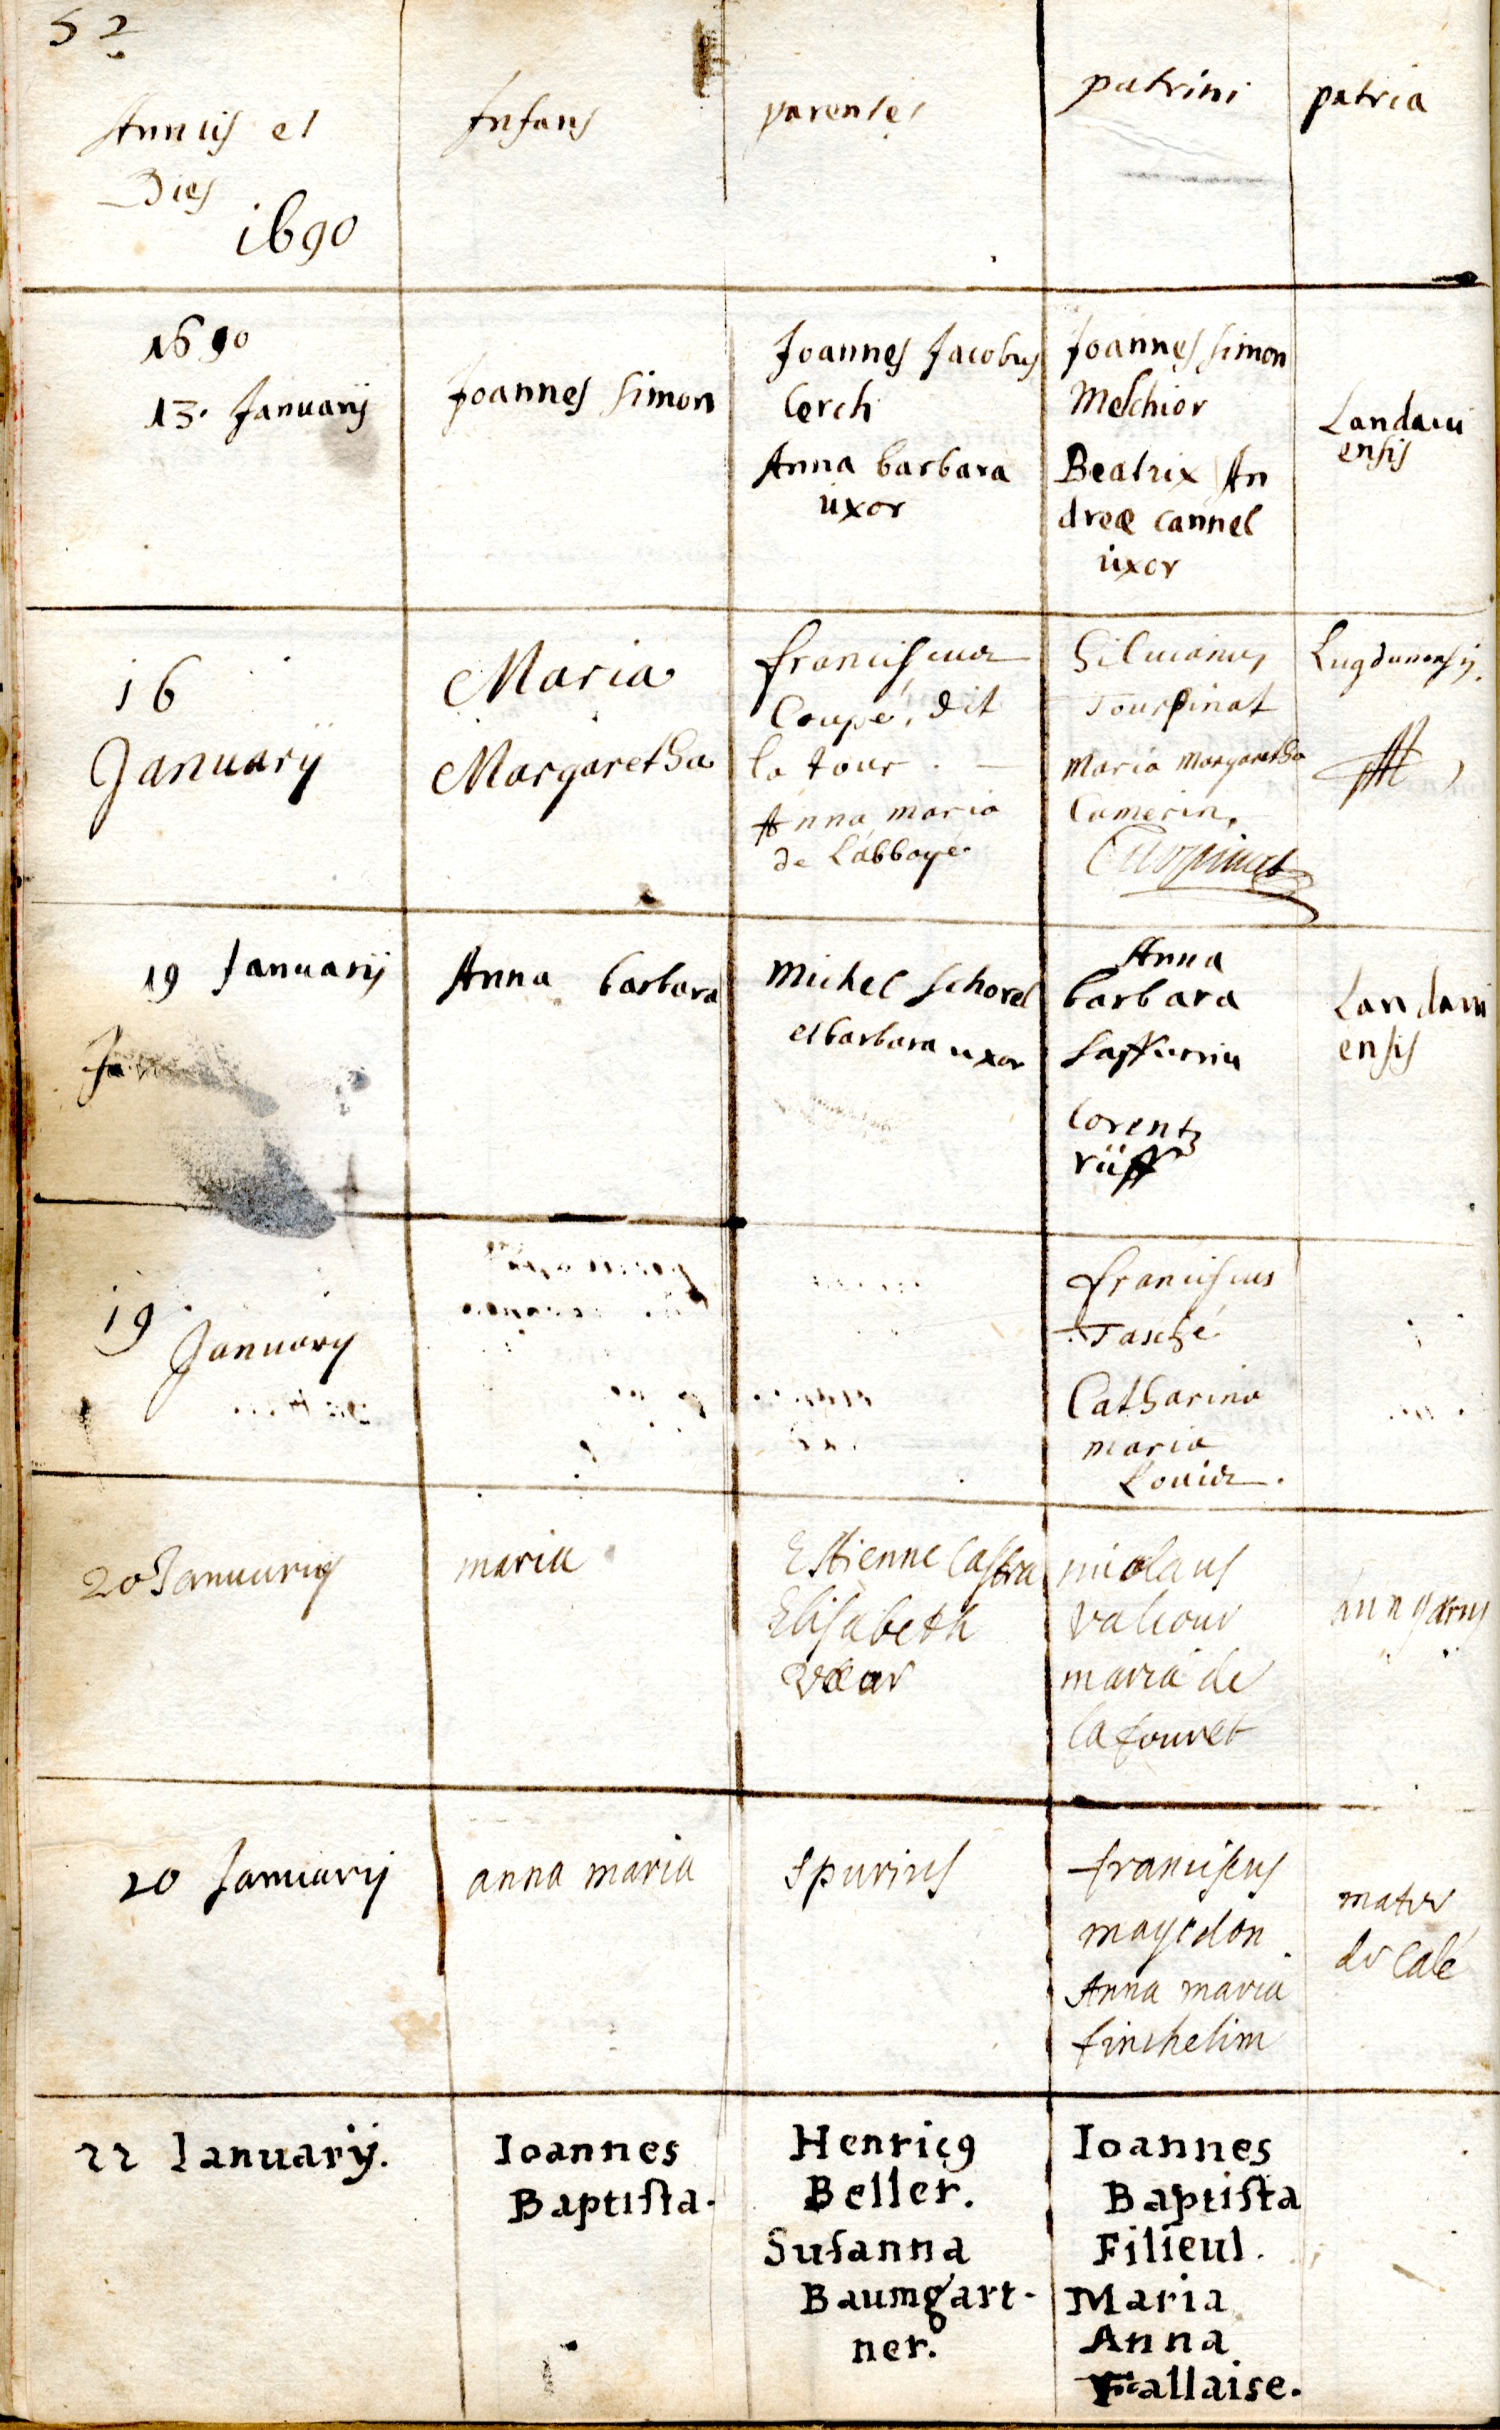 52
Annus et
Dies
1690
Infans
parentes
patrini
patria
1690
13. Januarij
Joannes Simon
Joannes Jacobus
Lerch
Anna barbara
uxor
Joannes Simon
Melchior
Beatrix An
dreæ Cannel
uxor
Landavi
ensis
16
Januarij
Maria
Margaretha
franciscus
Coupé, dit
la tour
Anna maria
de L'abbaye
Silvianus
Tourpinat
Maria Margaretha
Camerin.
Lugdunensis.
19 Januarij
Anna barbara
Michel Schorel
et barbara uxor
Anna
barbara
Lorentz
rüff
Landavi
ensis
19
Januarij
franciscus
Tasché
Catharina
maria
20 Januarij
maria
Estienne Castra
Elisabeth
nicolaus
valiour
maria de
la fouret
hungarus
20 Januarij
anna maria
Spurius
franciscus
mayedon
Anna maria
finchelim
mater
de Calé
22 Ianuarij.
Ioannes
Baptista.
Henricg
Beller.
Susanna
Baumgart-
ner.
Ioannes
Baptista
Filieul.
Maria
Anna
Fallaise.